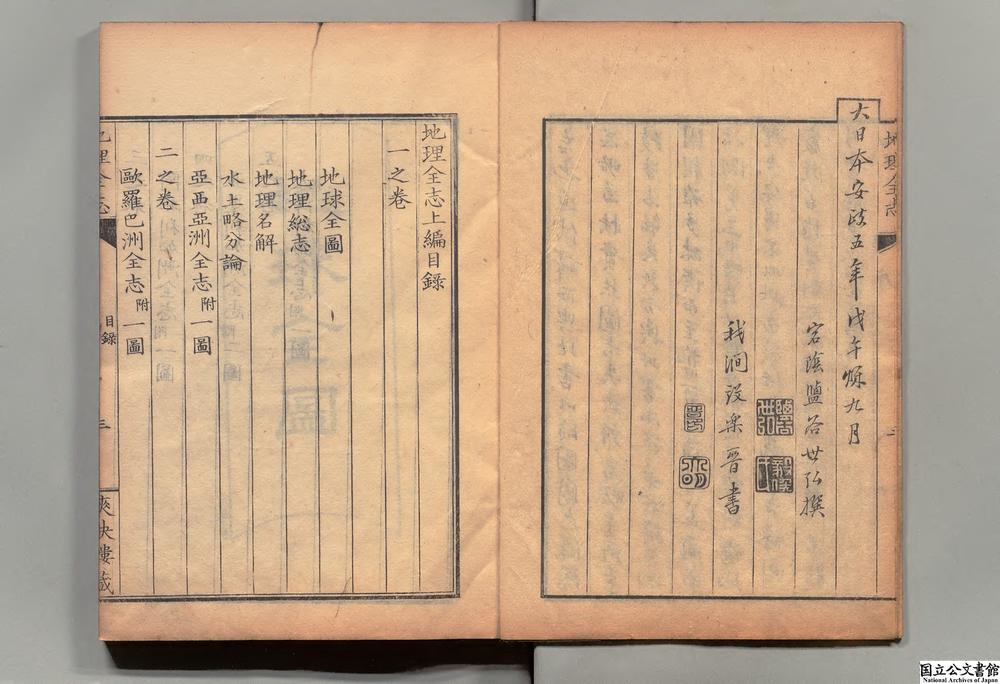 大日本安政五年戊午秌九月
宕陰鹽谷世弘撰
我澗設楽晋書
地理全志
地理全志上編目錄
一之卷
地球全圖
地理総志
地理名解
水土略分論
亞西亞洲全志附一圖
二之卷
歐羅巴洲全志附一圖
地理全志
目錄
三
爽快樓藏
国立公文書館
National Archives of Japan